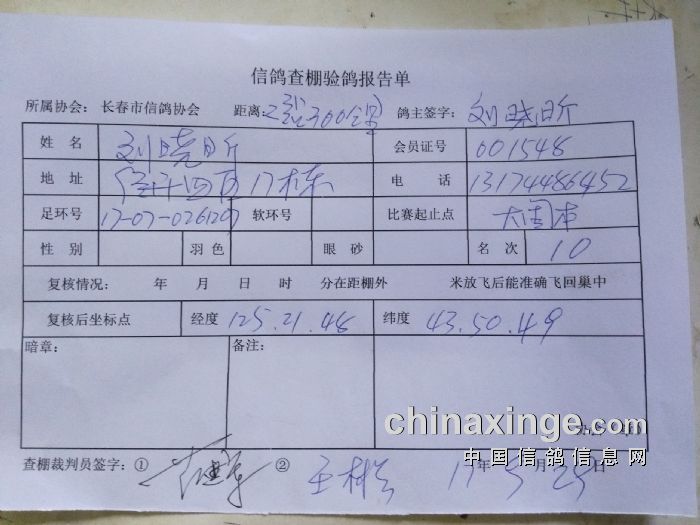 信鸽查棚验鸽报告单
所属协会: 长春市信鸽协会 距离: 300 鸽主签字: 刘晓昕
姓 名 刘晓昕 会员证号 001548
地 址 17栋 电 话 13174486452
足环号 17-07-026129 软环号 比赛起止点 大固本
性 别 羽色 眼 砂 名 次 10
复核情况: 年 月 日 时 分在距棚外 米放飞后能准确飞回巢中
复核后坐标点 经度 125.21.48 纬度 43.50.49
暗章: 备注:
chinaxinge.com
中国信鸽信息网
查棚裁判员签字: ① ② 17年5月29日